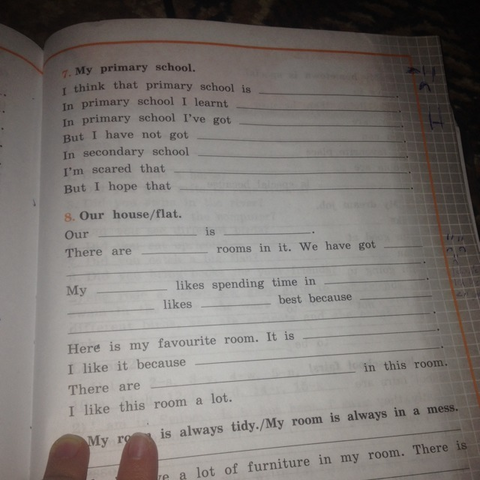 7. My primary school.
I think that primary school is ____.
In primary school I learnt ____.
In primary school I've got ____.
But I have not got ____.
In secondary school ____.
I'm scared that ____.
But I hope that ____.
8. Our house/flat.
Our ____ is ____.
There are ____ rooms in it. We have got ____
____.
My ____ likes spending time in ____.
____ likes ____ best because ____
____.
Here is my favourite room. It is ____.
I like it because ____.
There are ____ in this room.
I like this room a lot.
My room is always tidy./My room is always in a mess.
a lot of furniture in my room. There is